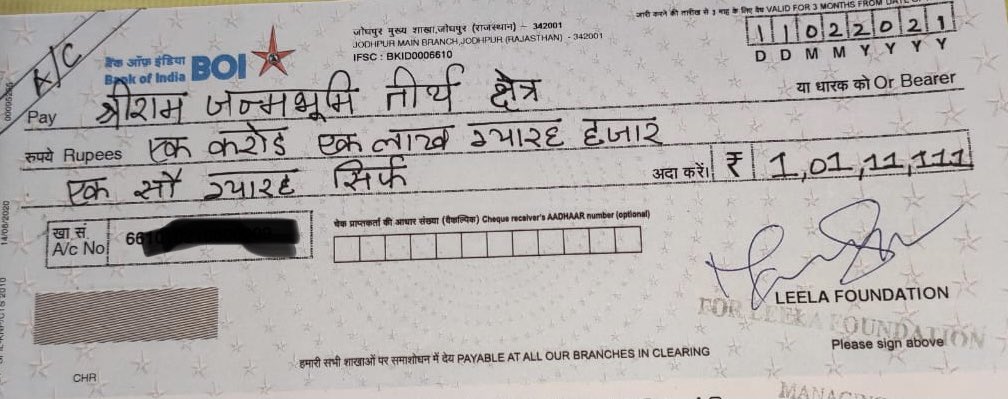 A/C
बैंक ऑफ़ इंडिया
Bank of India BOI
जोधपुर मुख्य शाखा,जोधपुर (राजस्थान) - 342001
JODHPUR MAIN BRANCH,JODHPUR (RAJASTHAN) - 342001
IFSC : BKID0006610
जारी करने की तारीख से 3 माह के लिए वैध VALID FOR 3 MONTHS FROM DATE
1 1 0 2 2 0 2 1
D D M M Y Y Y Y
Pay श्रीराम जन्मभूमि तीर्थ क्षेत्र या धारक को Or Bearer
रुपये Rupees एक करोड एक लाख ग्यारह हजार
एक सौ ग्यारह सिर्फ अदा करें। ₹ 1,01,11,111
खा सं.
A/c No 661
चेक प्राप्तकर्ता की आधार संख्या (वैकल्पिक) Cheque receiver's AADHAAR number (optional)
LEELA FOUNDATION
FOR LEELA FOUNDATION
Please sign above
हमारी सभी शाखाओं पर समाशोधन में देय PAYABLE AT ALL OUR BRANCHES IN CLEARING
CHR
14/08/2020